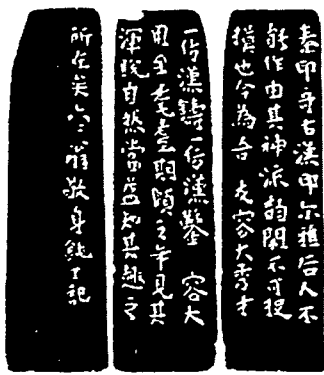 秦印奇古漢印尔雅后人不
能作由其神流韵閑不可捉
摸也今為吾友容大秀才
一仿漢鑄一仿漢鑿容大
用至耄耋期頤之年見其
渾脱自然當益知其趣之
所在矣六翁敬身純丁記